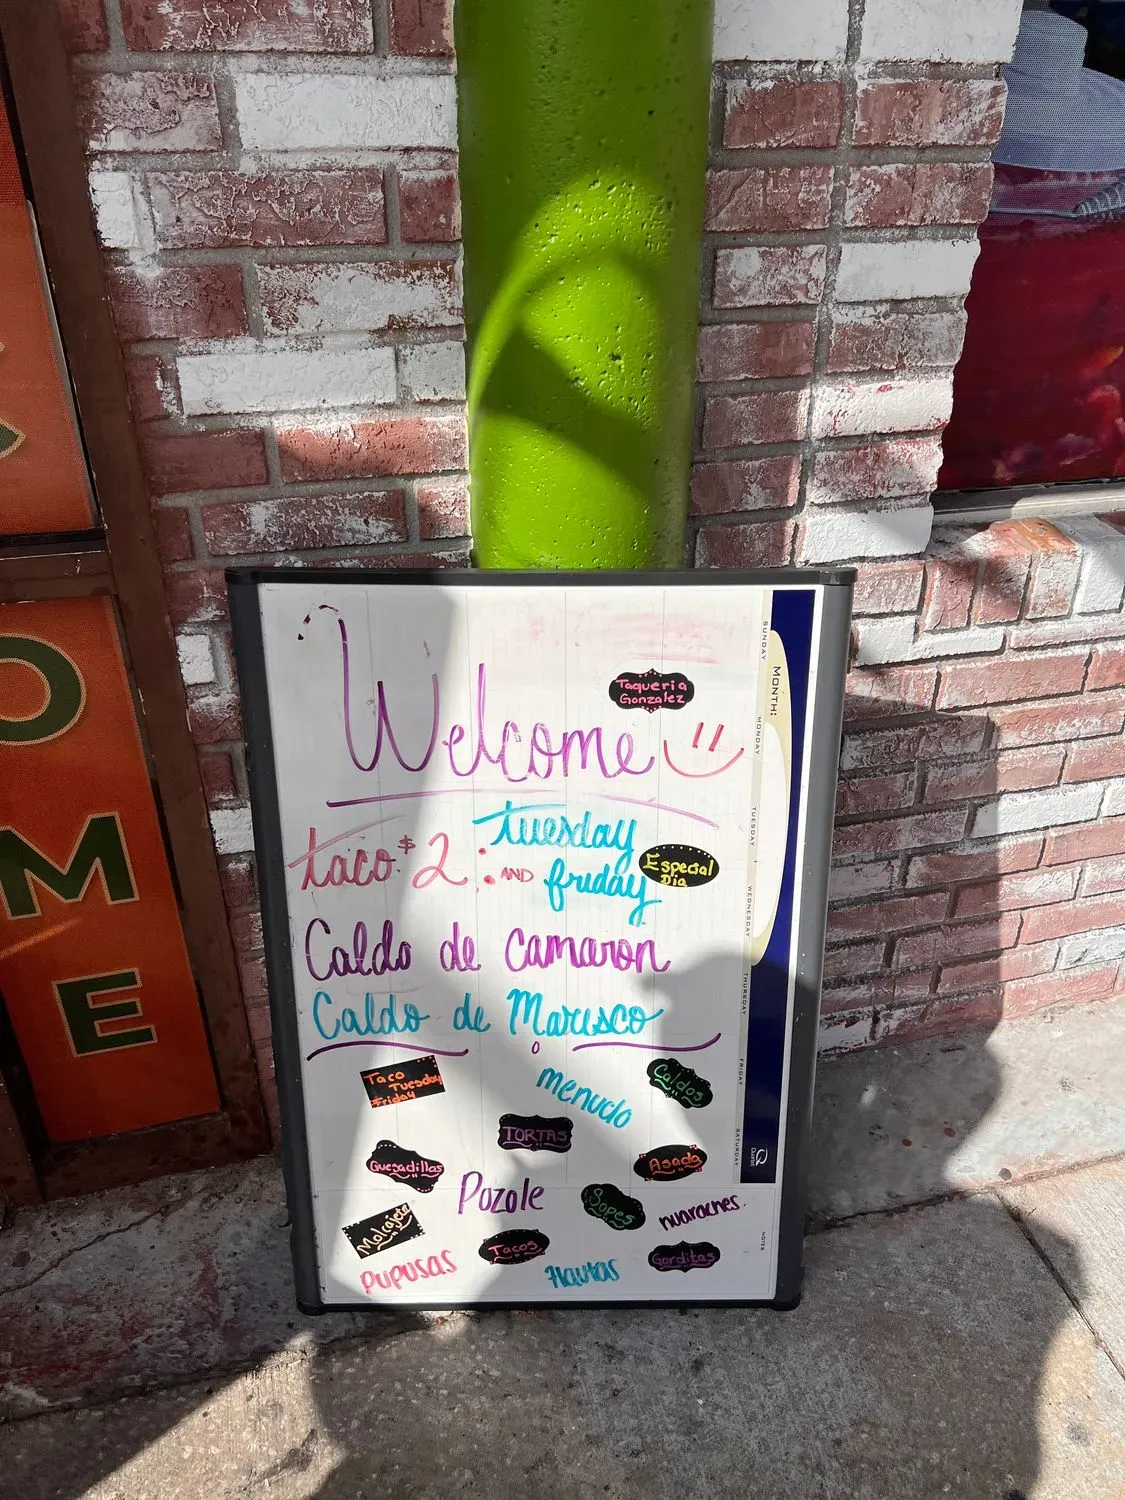 Welcome
Taqueria
Gonzalez
taco $2 : tuesday
AND friday
Especial
Dia
Caldo de Camaron
Caldo de Marisco
Taco
Tuesday
Friday
menudo
Caldos
TORTAS
Quesadillas
Asada
Pozole
Sopes
Huaraches
Molcajete
Tacos
Gorditas
Pupusas
Flautas
MONTH:
SUNDAY
MONDAY
TUESDAY
WEDNESDAY
THURSDAY
FRIDAY
SATURDAY
NOTES
Quartet
O
M
E